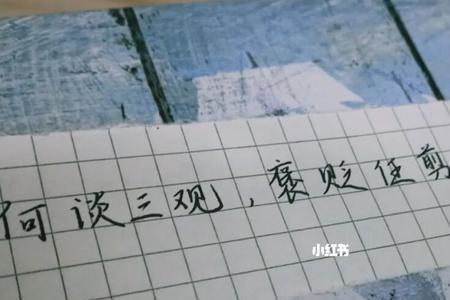 何谈三观，褒贬任剪
小红书